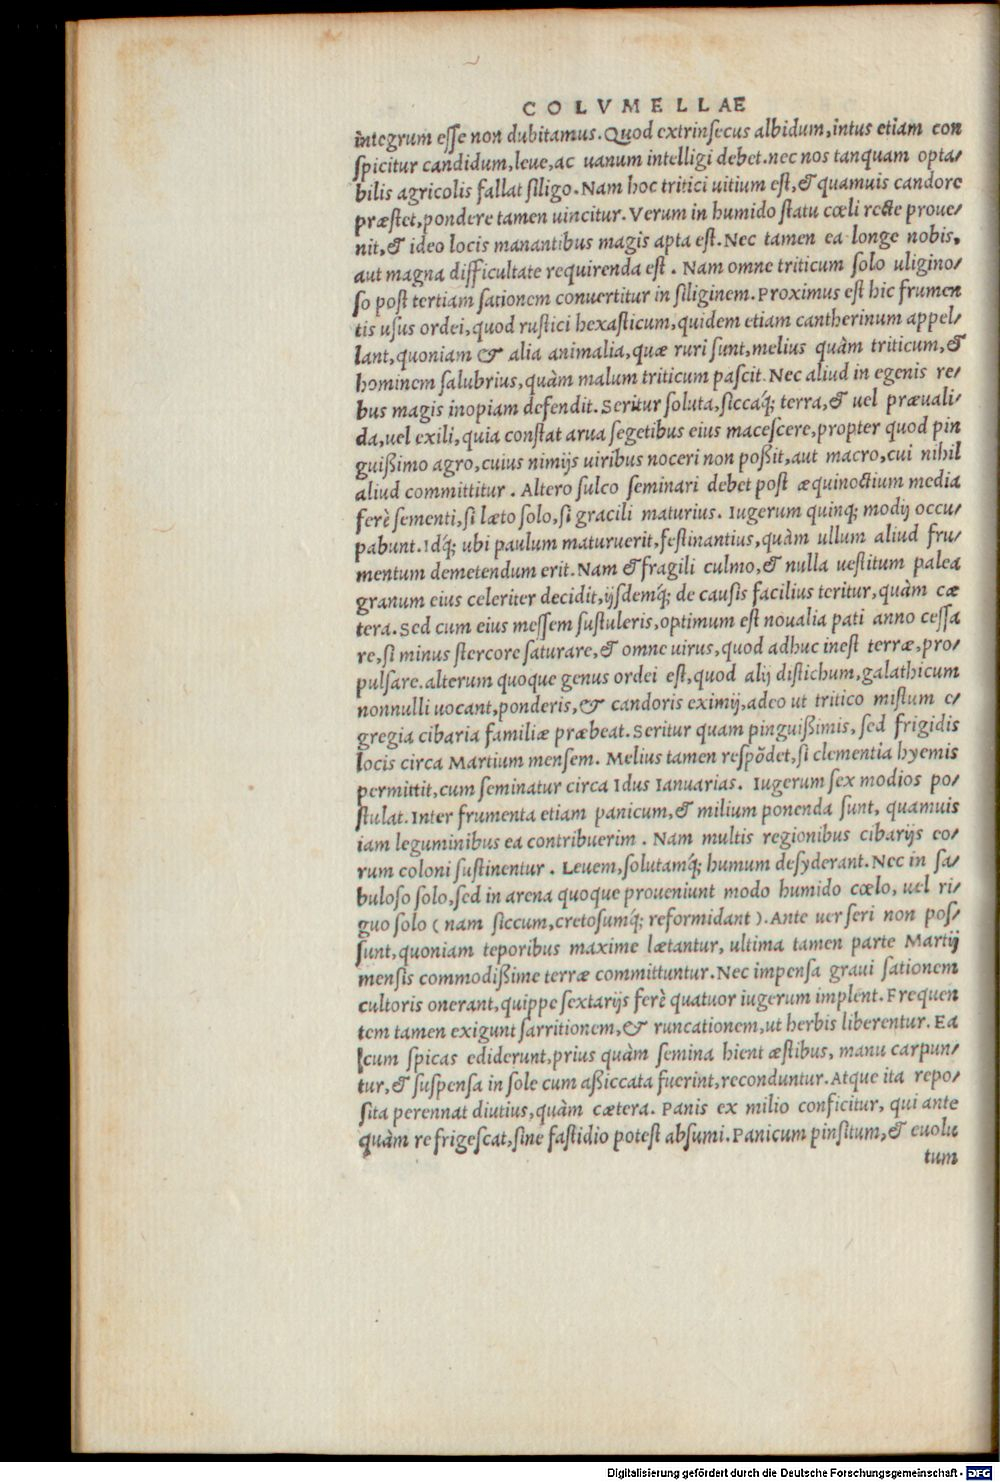 COLVMELLAE
integrum esse non dubitamus. Quod extrinsecus albidum, intus etiam con
spicitur candidum, leue, ac uanum intelligi debet. nec nos tanquam opta-
bilis agricolis fallat siligo. Nam hoc tritici uitium est, & quamuis candore
præstet, pondere tamen uincitur. Verum in humido statu cœli recte proue-
nit, & ideo locis manantibus magis apta est. Nec tamen ea longe nobis,
aut magna difficultate requirenda est. Nam omne triticum solo uligino-
so post tertiam sationem conuertitur in siliginem. Proximus est hic frumen
tis usus ordei, quod rustici hexasticum, quidem etiam cantherinum appel-
lant, quoniam & alia animalia, quæ ruri sunt, melius quàm triticum, &
hominem salubrius, quàm malum triticum pascit. Nec aliud in egenis re-
bus magis inopiam defendit. Seritur soluta, siccaq́; terra, & uel præuali-
da, uel exili, quia constat arua segetibus eius macescere, propter quod pin
guißimo agro, cuius nimijs uiribus noceri non poßit, aut macro, cui nihil
aliud committitur. Altero sulco seminari debet post æquinoctium media
ferè sementi, si læto solo, si gracili maturius. Iugerum quinq; modij occu-
pabunt. Idq́; ubi paulum maturuerit, festinantius, quàm ullum aliud fru-
mentum demetendum erit. Nam & fragili culmo, & nulla uestitum palea
granum eius celeriter decidit, ijsdemq́; de causis facilius teritur, quàm cæ
tera. Sed cum eius messem sustuleris, optimum est noualia pati anno cessa
re, si minus stercore saturare, & omne uirus, quod adhuc inest terræ, pro-
pulsare. alterum quoque genus ordei est, quod alij distichum, galathicum
nonnulli uocant, ponderis, & candoris eximij, adeo ut tritico mistum e-
gregia cibaria familiæ præbeat. Seritur quam pinguißimis, sed frigidis
locis circa Martium mensem. Melius tamen respõdet, si clementia hyemis
permittit, cum seminatur circa Idus Ianuarias. Iugerum sex modios po-
stulat. Inter frumenta etiam panicum, & milium ponenda sunt, quamuis
iam leguminibus ea contribuerim. Nam multis regionibus cibarijs eo-
rum coloni sustinentur. Leuem, solutamq́; humum desyderant. Nec in sa-
buloso solo, sed in arena quoque proueniunt modo humido cœlo, uel ri-
guo solo (nam siccum, cretosumq́; reformidant). Ante uer seri non pos-
sunt, quoniam teporibus maxime lætantur, ultima tamen parte Martij
mensis commodißime terræ committuntur. Nec impensa graui sationem
cultoris onerant, quippe sextarijs ferè quatuor iugerum implent. Frequen
tem tamen exigunt sarritionem, & runcationem, ut herbis liberentur. Ea
cum spicas ediderunt, prius quàm semina hient æstibus, manu carpun-
tur, & suspensa in sole cum aßiccata fuerint, reconduntur. Atque ita repo-
sita perennat diutius, quàm cætera. Panis ex milio conficitur, qui ante
quàm refrigescat, sine fastidio potest absumi. Panicum pinsitum, & euolu
tum
Digitalisierung gefördert durch die Deutsche Forschungsgemeinschaft - DFG